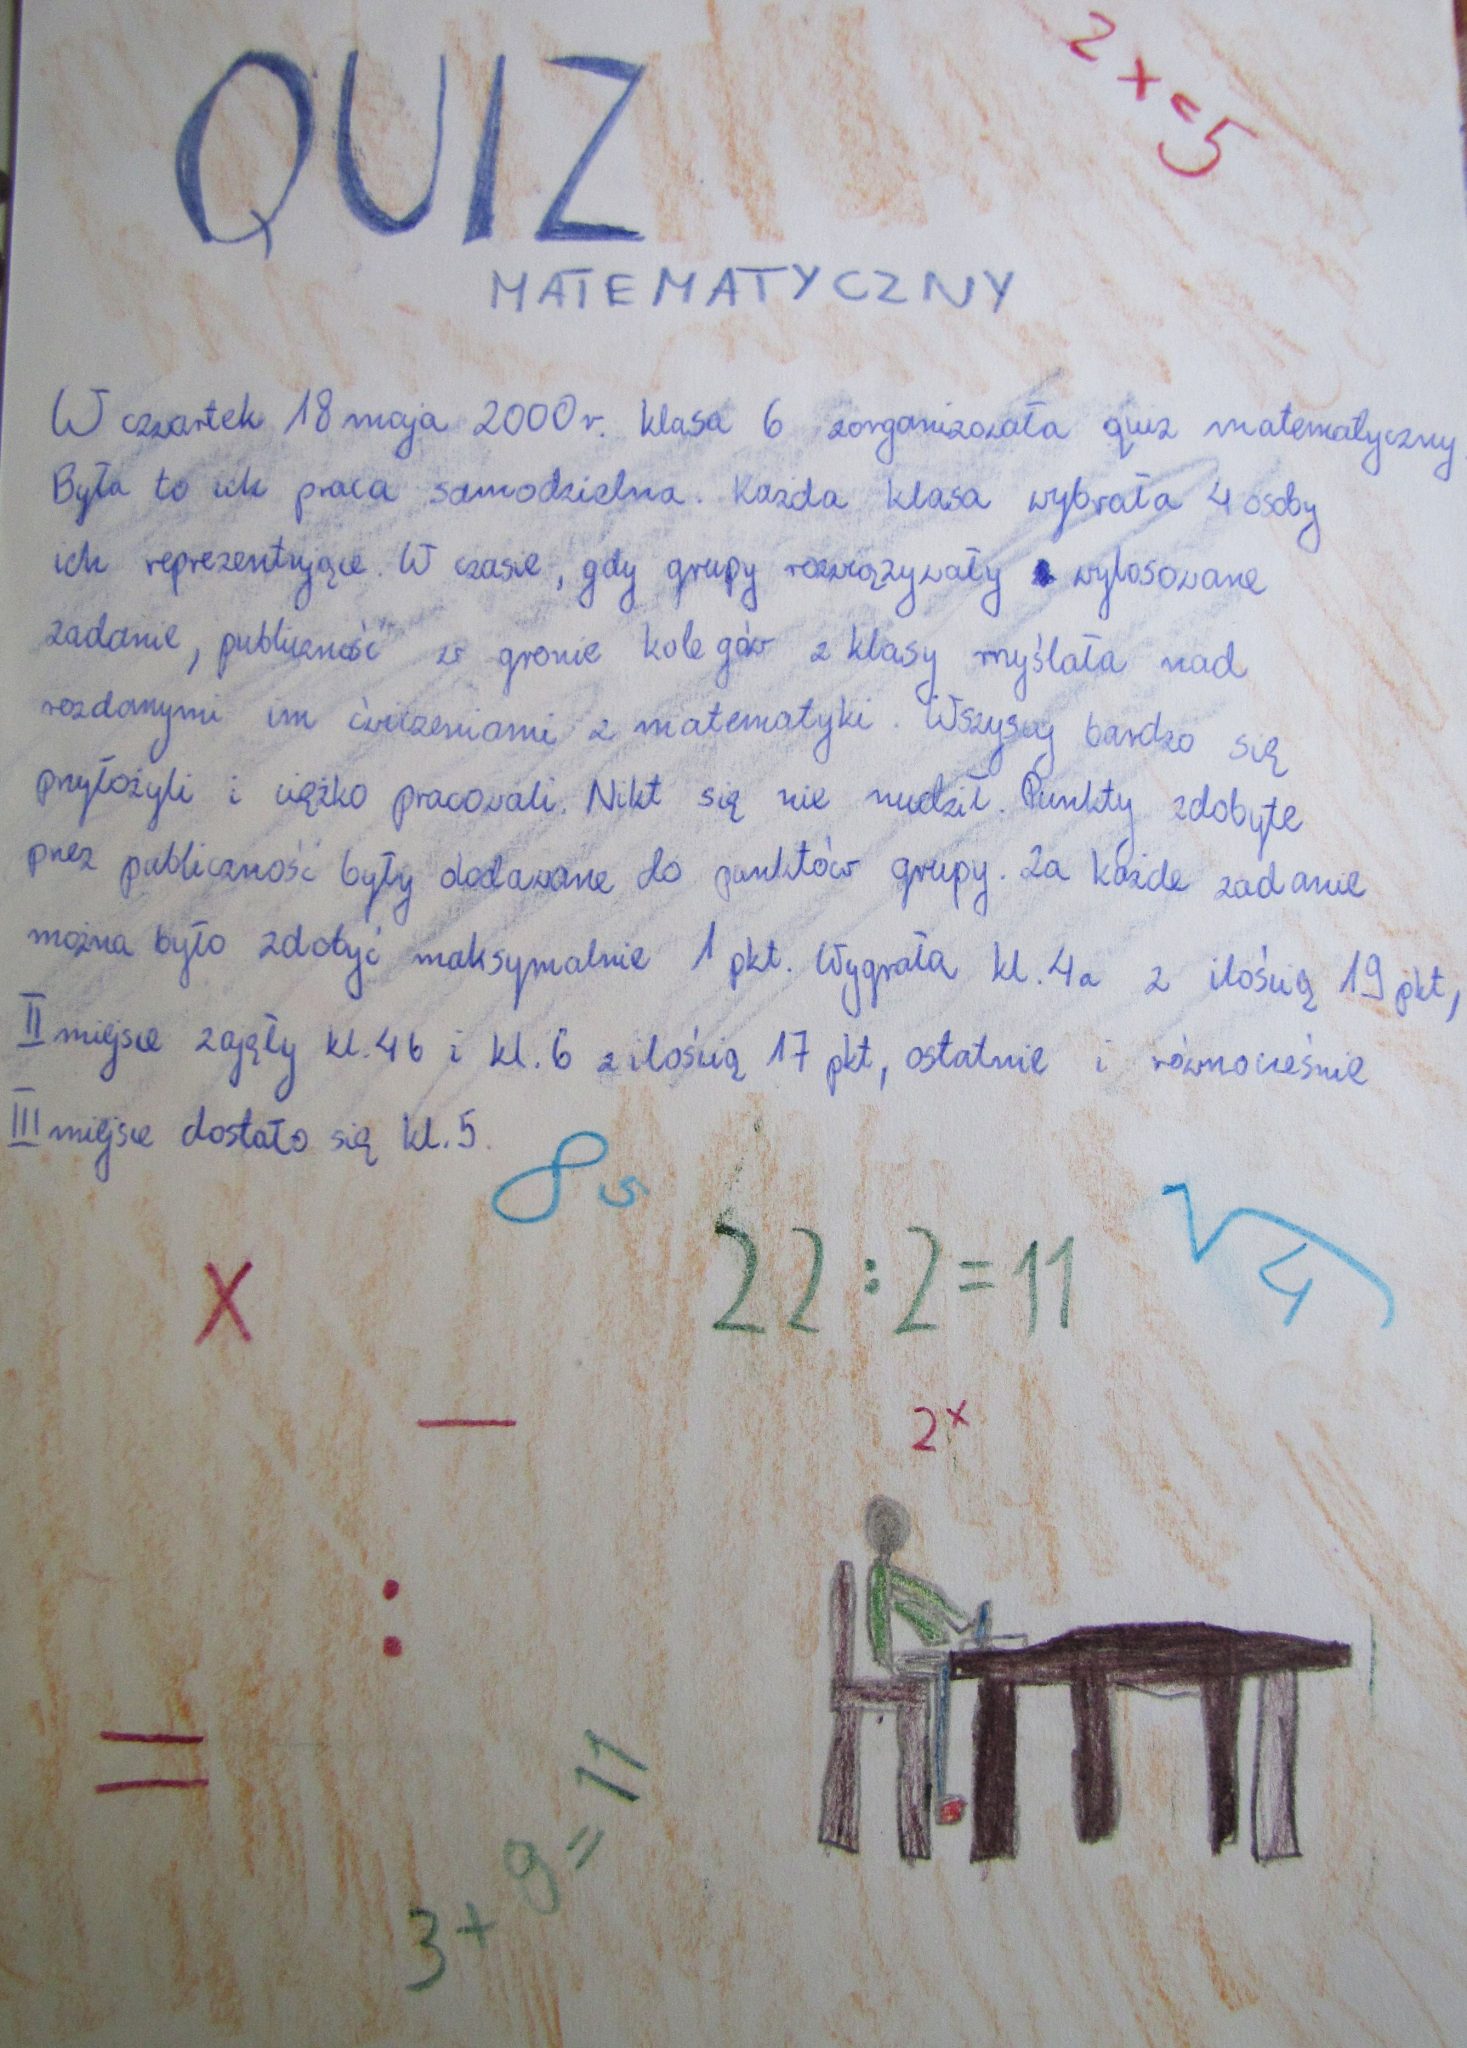 2x=5
QUIZ
MATEMATYCZNY
W czwartek 18 maja 2000r. klasa 6 zorganizowała quiz matematyczny.
Była to ich praca samodzielna. Każda klasa wybrała 4 osoby
ich reprezentujące. W czasie, gdy grupy rozwiązywały wylosowane
zadanie, publiczność w gronie kolegów z klasy myślała nad
rozdanymi im ćwiczeniami z matematyki. Wszyscy bardzo się
przyłożyli i ciężko pracowali. Nikt się nie nudził. Punkty zdobyte
przez publiczność były dodawane do punktów grupy. Za każde zadanie
można było zdobyć maksymalnie 1 pkt. Wygrała kl. 4a z ilością 19 pkt,
II miejsce zajęły kl. 4b i kl. 6 z ilością 17 pkt, ostatnie i równocześnie
III miejsce dostało się kl. 5.
22:2=11
√4
x
—
2ˣ
:
=
3+9=11